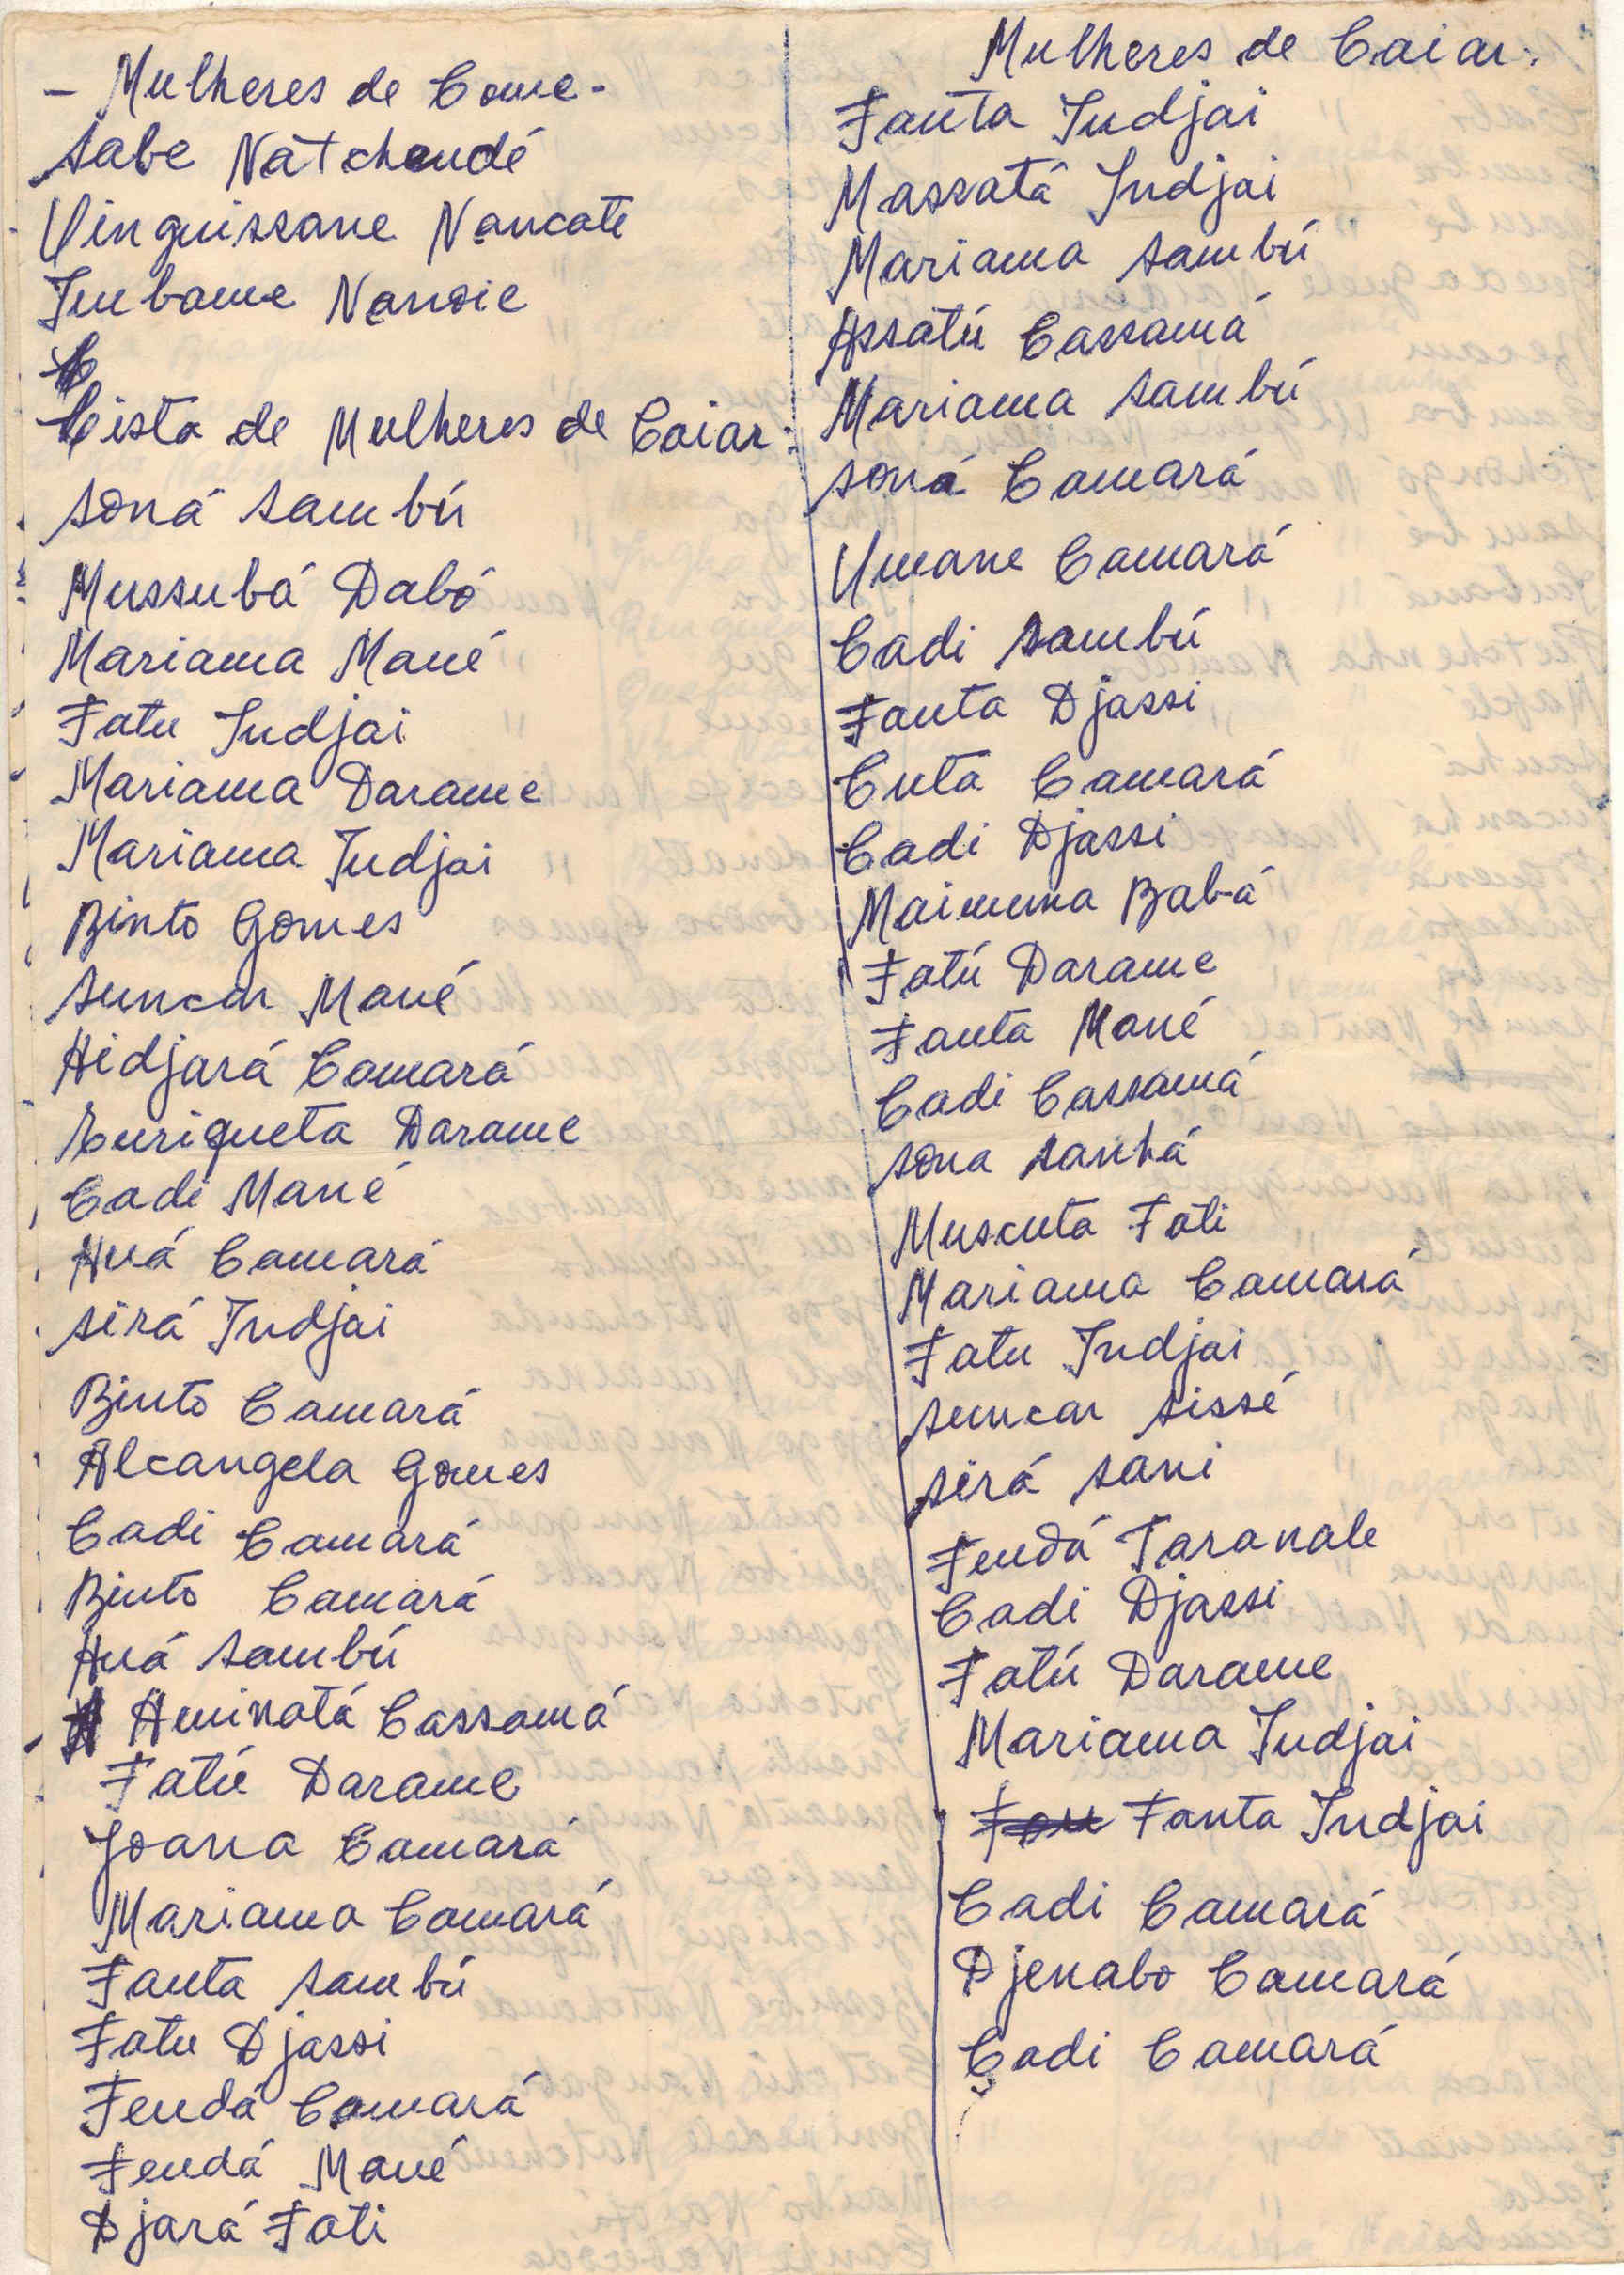 - Mulheres de Come -
Sabe Natchendé
Vinguissane Nancate
Imbame Nansie
Lista de Mulheres de Caiar:
Soná Sambú
Mussubá Dabó
Mariama Mané
Fatu Indjai
Mariama Darame
Mariama Indjai
Binto Gomes
Suncar Mané
Hidjará Camará
Enriqueta Darame
Cadi Mané
Auá Camará
Sirá Indjai
Binto Camará
Alcangela Gomes
Cadi Camará
Binto Camará
Auá Sambú
Aminatá Cassamá
Fatú Darame
Joana Camará
Mariama Camará
Fanta Sambú
Fatu Djassi
Fendá Camará
Fendá Mané
Djará Fati
Mulheres de Caiar.
Fanta Indjai
Massatá Indjai
Mariama Sambú
Assatú Cassamá
Mariama Sambú
Soná Camará
Umane Camará
Cadi Sambú
Fanta Djassi
Cuta Camará
Cadi Djassi
Maimuna Babá
Fatú Darame
Fanta Mané
Cadi Cassamá
Sona Sanhá
Muscuta Fati
Mariama Camará
Fatu Indjai
Suncar Sissé
Sirá Sani
Fendá Taranale
Cadi Djassi
Fatú Darame
Mariama Indjai
Fanta Indjai
Cadi Camará
Djenabo Camará
Cadi Camará